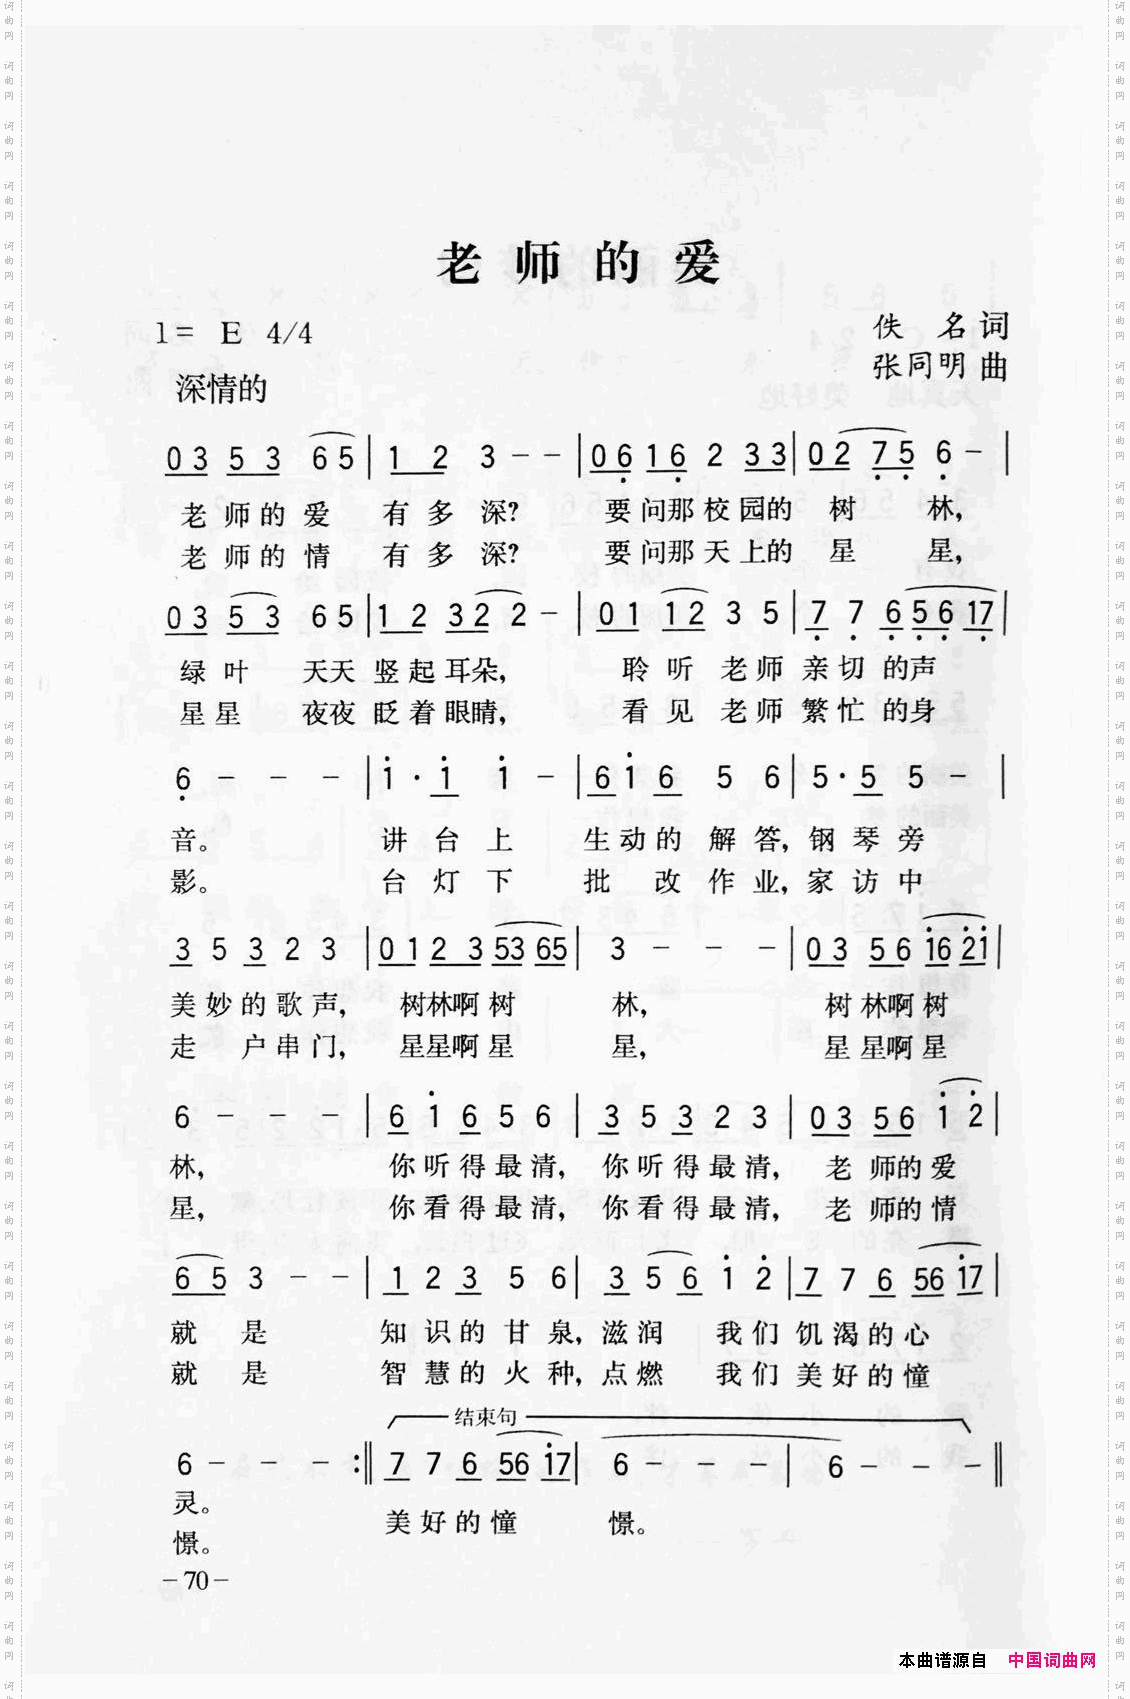 老师的爱
1= E 4/4
佚 名 词
张同明 曲
深情的
0 3 5 3 6 5 | 1 2 3 - - | 0 6 1 6 2 3 3 | 0 2 7 5 6 - |
老师的爱 有多深? 要问那校园的 树 林,
老师的情 有多深? 要问那天上的 星 星,
0 3 5 3 6 5 | 1 2 3 2 2 - | 0 1 1 2 3 5 | 7 7 6 5 6 1 7 |
绿叶 天天 竖起耳朵, 聆听 老师亲切 的声
星星 夜夜 眨着眼睛, 看见 老师繁忙 的身
6 - - - | 1 · 1 1 - | 6 1 6 5 6 | 5 · 5 5 - |
音。 讲台上 生动的 解答, 钢琴旁
影。 台灯下 批 改 作业, 家访中
3 5 3 2 3 | 0 1 2 3 5 3 6 5 | 3 - - - | 0 3 5 6 1 6 2 1 |
美妙的歌声, 树林啊树 林, 树林啊树
走 户串门, 星星啊星 星, 星星啊星
6 - - - | 6 1 6 5 6 | 3 5 3 2 3 | 0 3 5 6 1 2 |
林, 你听得最清, 你听得最清, 老师的爱
星, 你看得最清, 你看得最清, 老师的情
6 5 3 - - | 1 2 3 5 6 | 3 5 6 1 2 | 7 7 6 5 6 1 7 |
就 是 知识的甘泉, 滋润 我们饥渴的心
就 是 智慧的火种, 点燃 我们美好的憧
结束句
6 - - - :‖ 7 7 6 5 6 1 7 | 6 - - - | 6 - - - ‖
灵。
美好的憧 憬。
憬。
- 70 -
本曲谱源自 中国词曲网